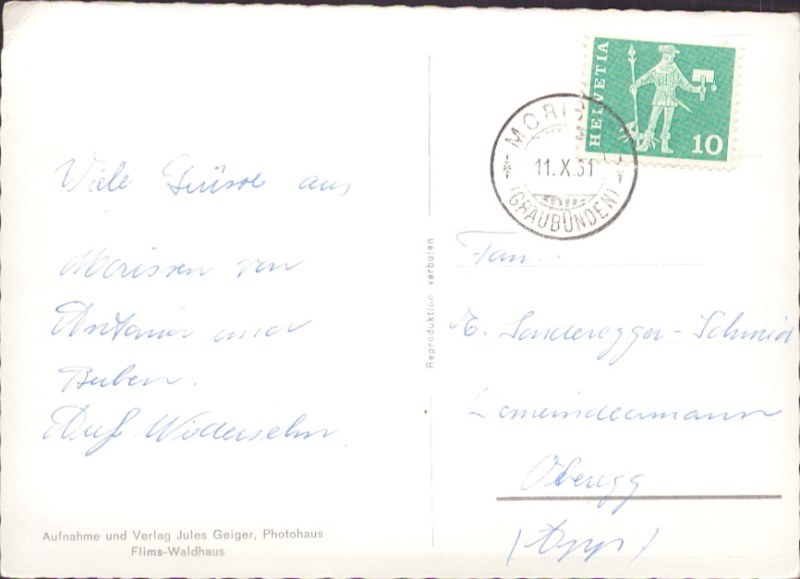 Viele Grüsse aus
Morissen von
Antonia und
Buben.
Auf Wiedersehn
Aufnahme und Verlag Jules Geiger, Photohaus
Flims-Waldhaus
Reproduktion verboten
HELVETIA
10
MORIS
11.X.61
(GRAUBÜNDEN)
Fam.
Sonderegger-Schmid
Gemeindeammann
Oberegg
(App)